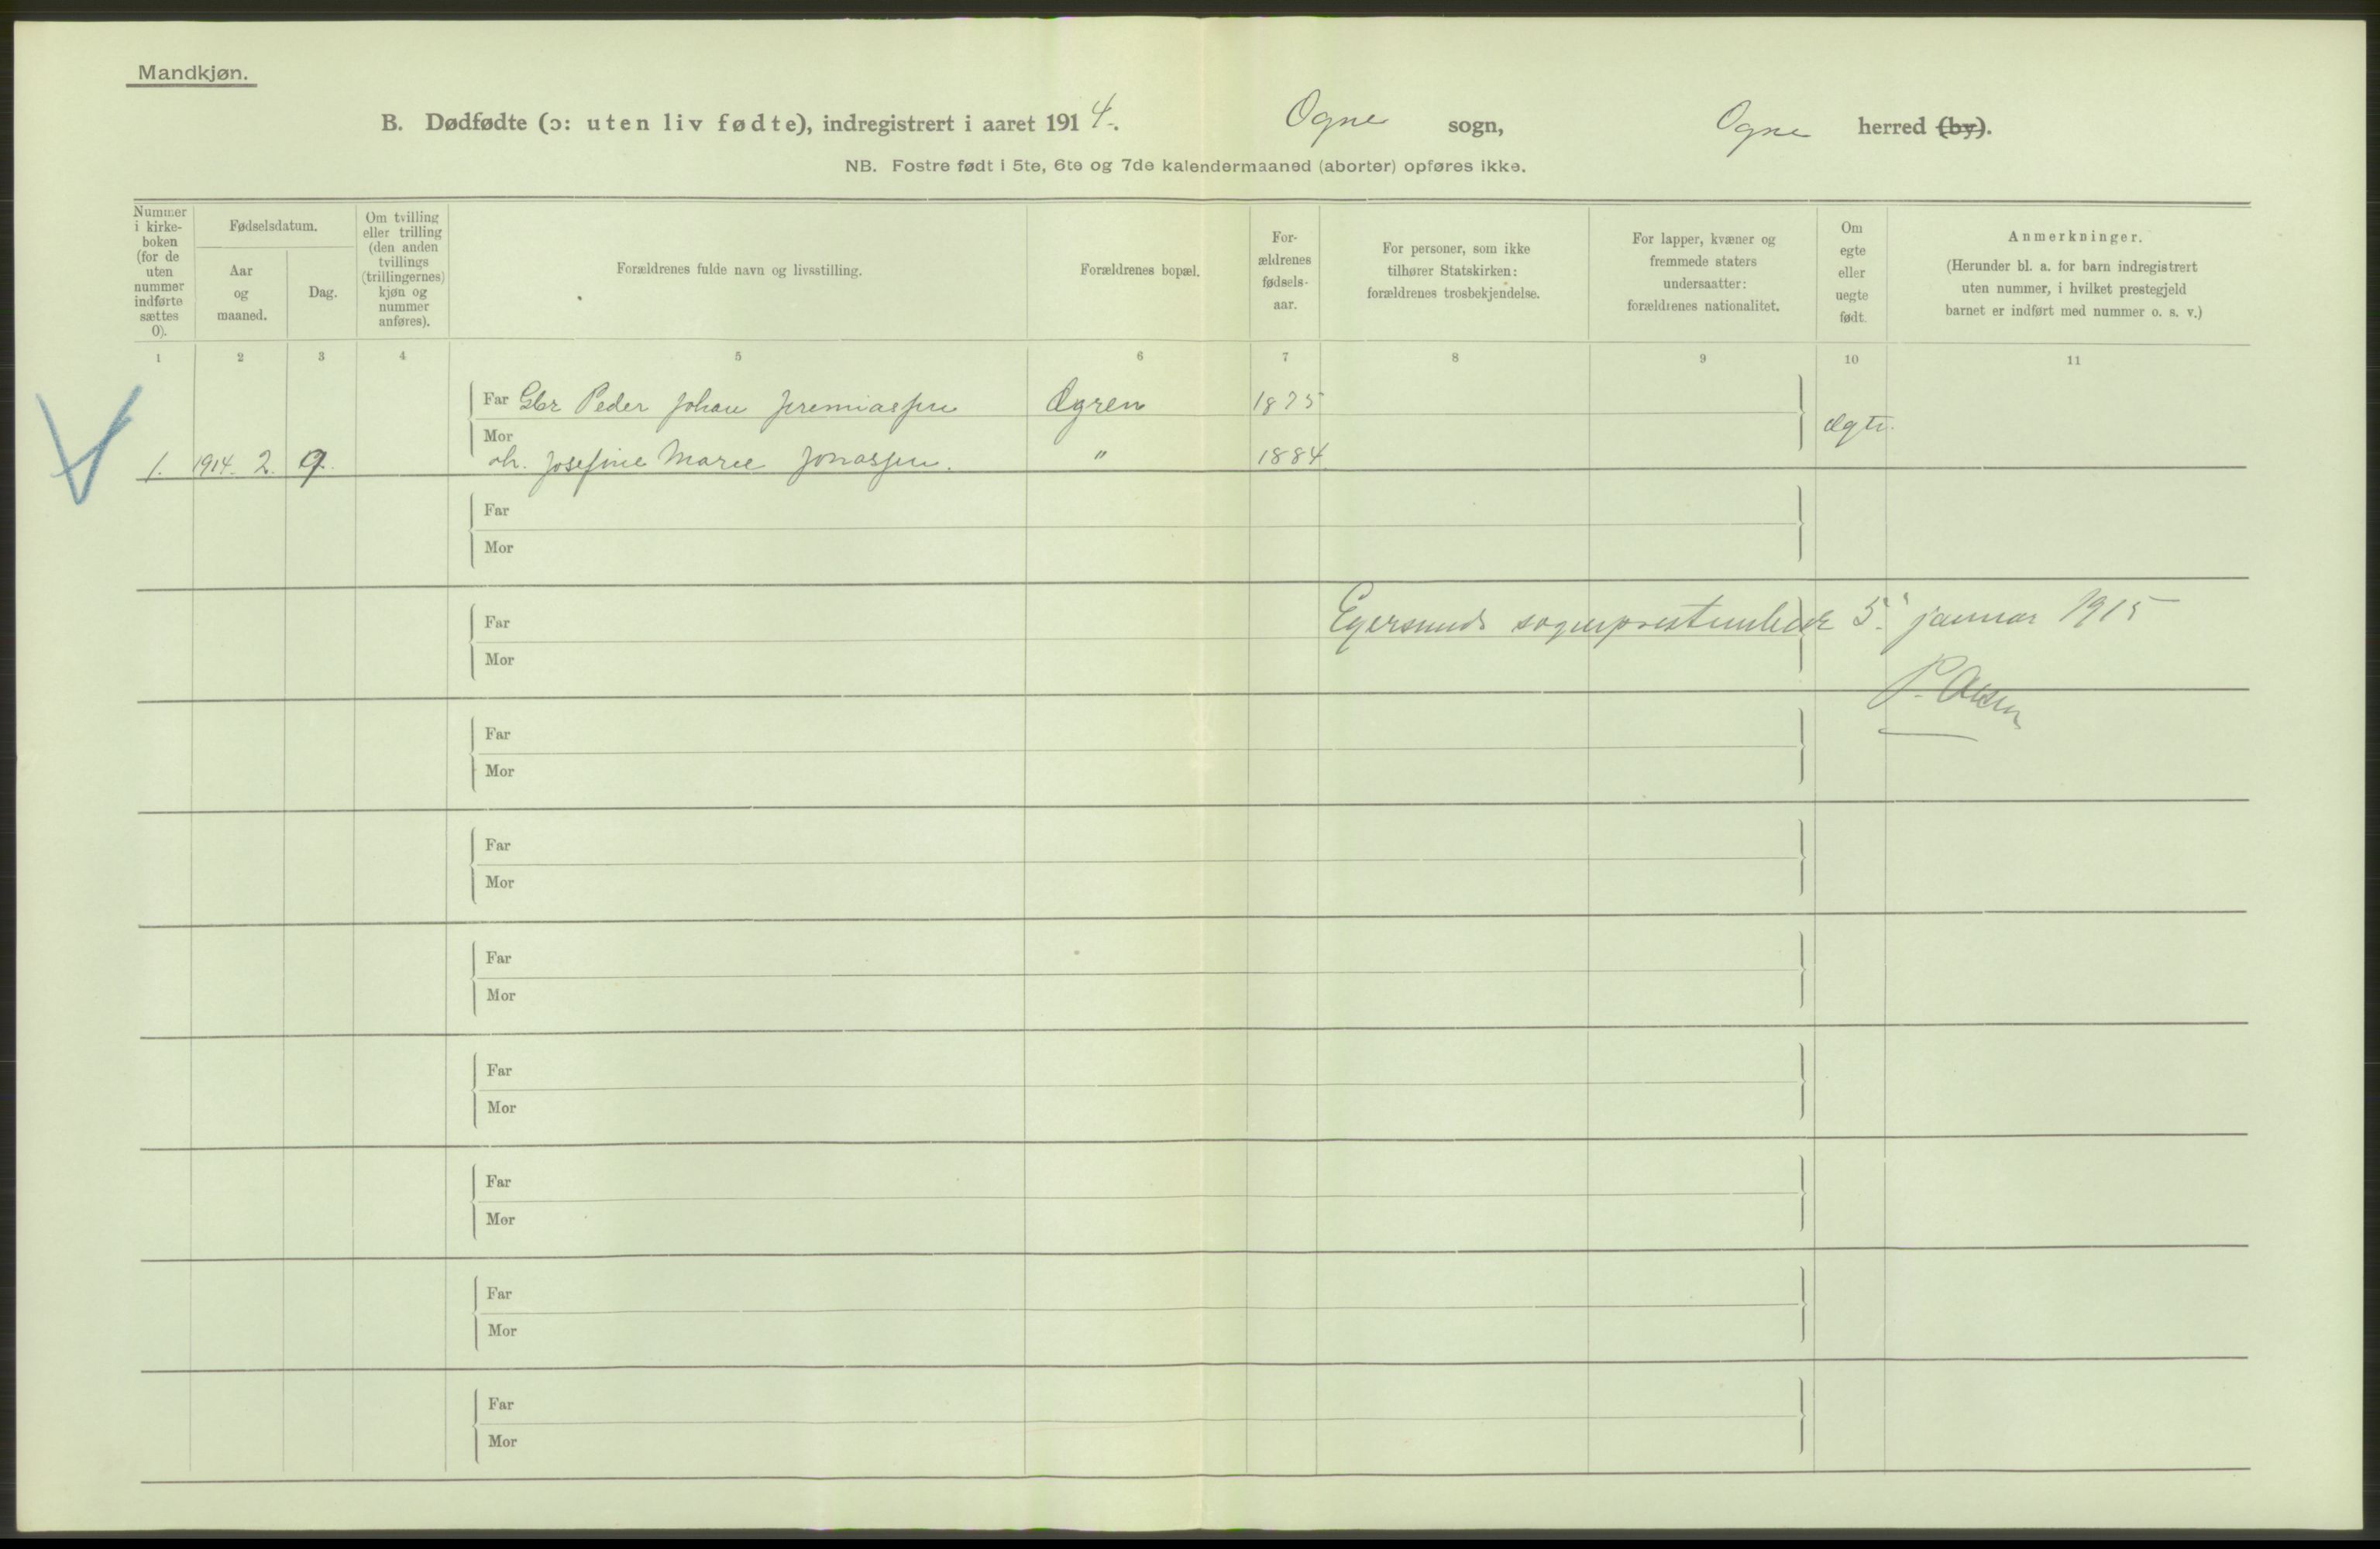 Mandkjøn.
B. Dødfødte (ɔ: uten liv fødte), indregistrert i aaret 1914. Ogne sogn, Ogne herred (by).
NB. Fostre født i 5te, 6te og 7de kalendermaaned (aborter) opføres ikke.
Nummer i kirke-boken (for de uten nummer indførte sættes 0).
Fødselsdatum.
Aar og maaned.
Dag.
Om tvilling eller trilling (den anden tvillings (trillingernes) kjøn og nummer anføres).
Forældrenes fulde navn og livsstilling.
Forældrenes bopæl.
For-ældrenes fødsels-aar.
For personer, som ikke tilhører Statskirken: forældrenes trosbekjendelse.
For lapper, kvæner og fremmede staters undersaatter: forældrenes nationalitet.
Om egte eller uegte født.
Anmerkninger.
(Herunder bl. a. for barn indregistrert uten nummer, i hvilket prestegjeld barnet er indført med nummer o. s. v.)
1 2 3 4 5 6 7 8 9 10 11
Far Gbr Peder Johan Jeremiassen Ogren 1875
Mor
1. 1914. 2. 9. Josefine Marie Jonassen. " 1884 ægte.
Far
Mor
Far Egersunds sogneprestembede 5. januar 1915
Mor
P. Olsen
Far
Mor
Far
Mor
Far
Mor
Far
Mor
Far
Mor
Far
Mor
Far
Mor